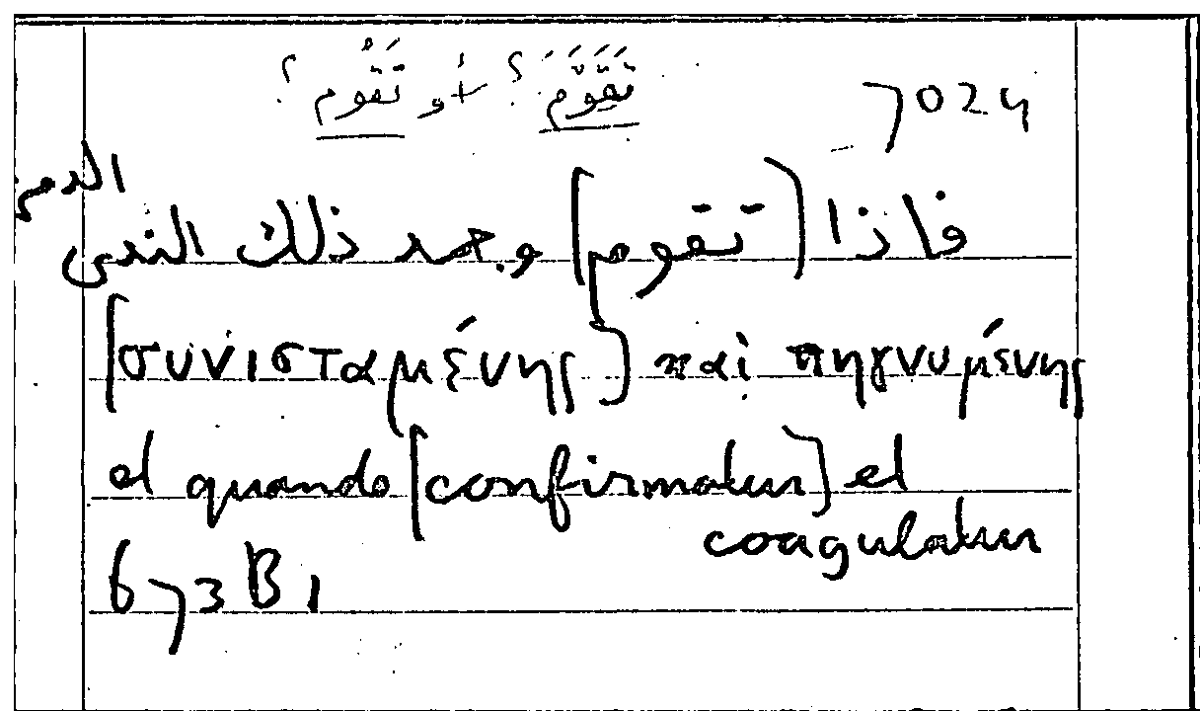 تَقَوَّمَ؟ أو تَقُوم؟
7024
فاذا [تقوم] وجمد ذلك الندى الدمى
[συνισταμένης] καὶ πηγνυμένης
et quando [confirmatur] et
coagulatur
673B1